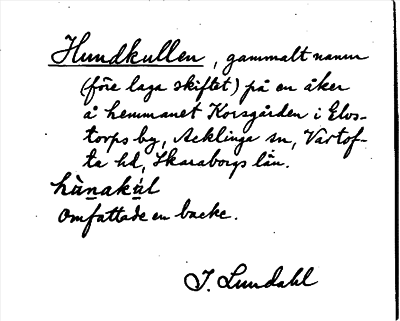 Hundkullen, gammalt namn
(före laga skiftet) på en åker
å hemmanet Korsgården i Elvs-
torps by, Acklinge sn, Vartof-
ta hd, Skaraborgs län.
hùnakúl
Omfattade en backe.
J. Lundahl